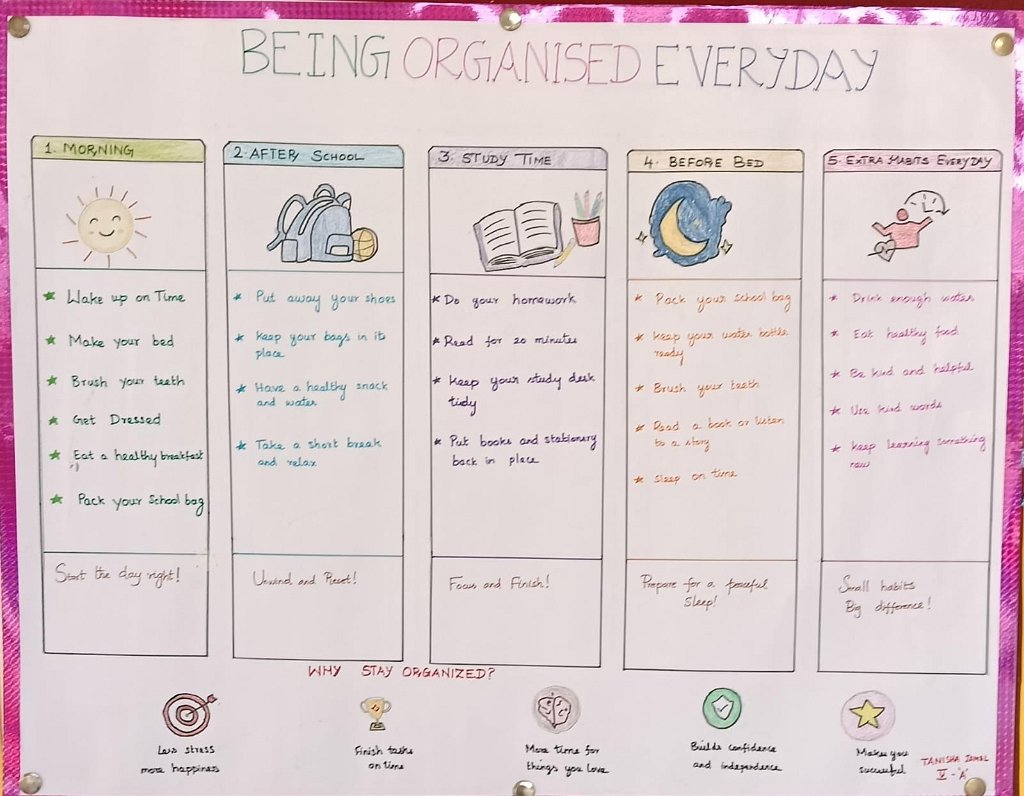 BEING ORGANISED EVERYDAY
1. MORNING
★ Wake up on Time
★ Make your bed
★ Brush your teeth
★ Get Dressed
★ Eat a healthy breakfast
★ Pack your School bag
Start the day right!
2. AFTER SCHOOL
★ Put away your shoes
★ Keep your bags in its
place
★ Have a healthy snack
and water
★ Take a short break
and relax
Unwind and Reset!
3. STUDY TIME
★ Do your homework
★ Read for 20 minutes
★ Keep your study desk
tidy
★ Put books and stationery
back in place
Focus and Finish!
4. BEFORE BED
★ Pack your school bag
★ Keep your water bottle
ready
★ Brush your teeth
★ Read a book or listen
to a story
★ Sleep on time
Prepare for a peaceful
Sleep!
5. EXTRA HABITS EVERYDAY
★ Drink enough water
★ Eat healthy food
★ Be kind and helpful
★ Use kind words
★ Keep learning something
new
Small habits
Big difference!
WHY STAY ORGANIZED?
Less stress
more happiness
Finish tasks
on time
More time for
things you love
Builds confidence
and independence
Makes you
successful
TANISHA
V - 'A'